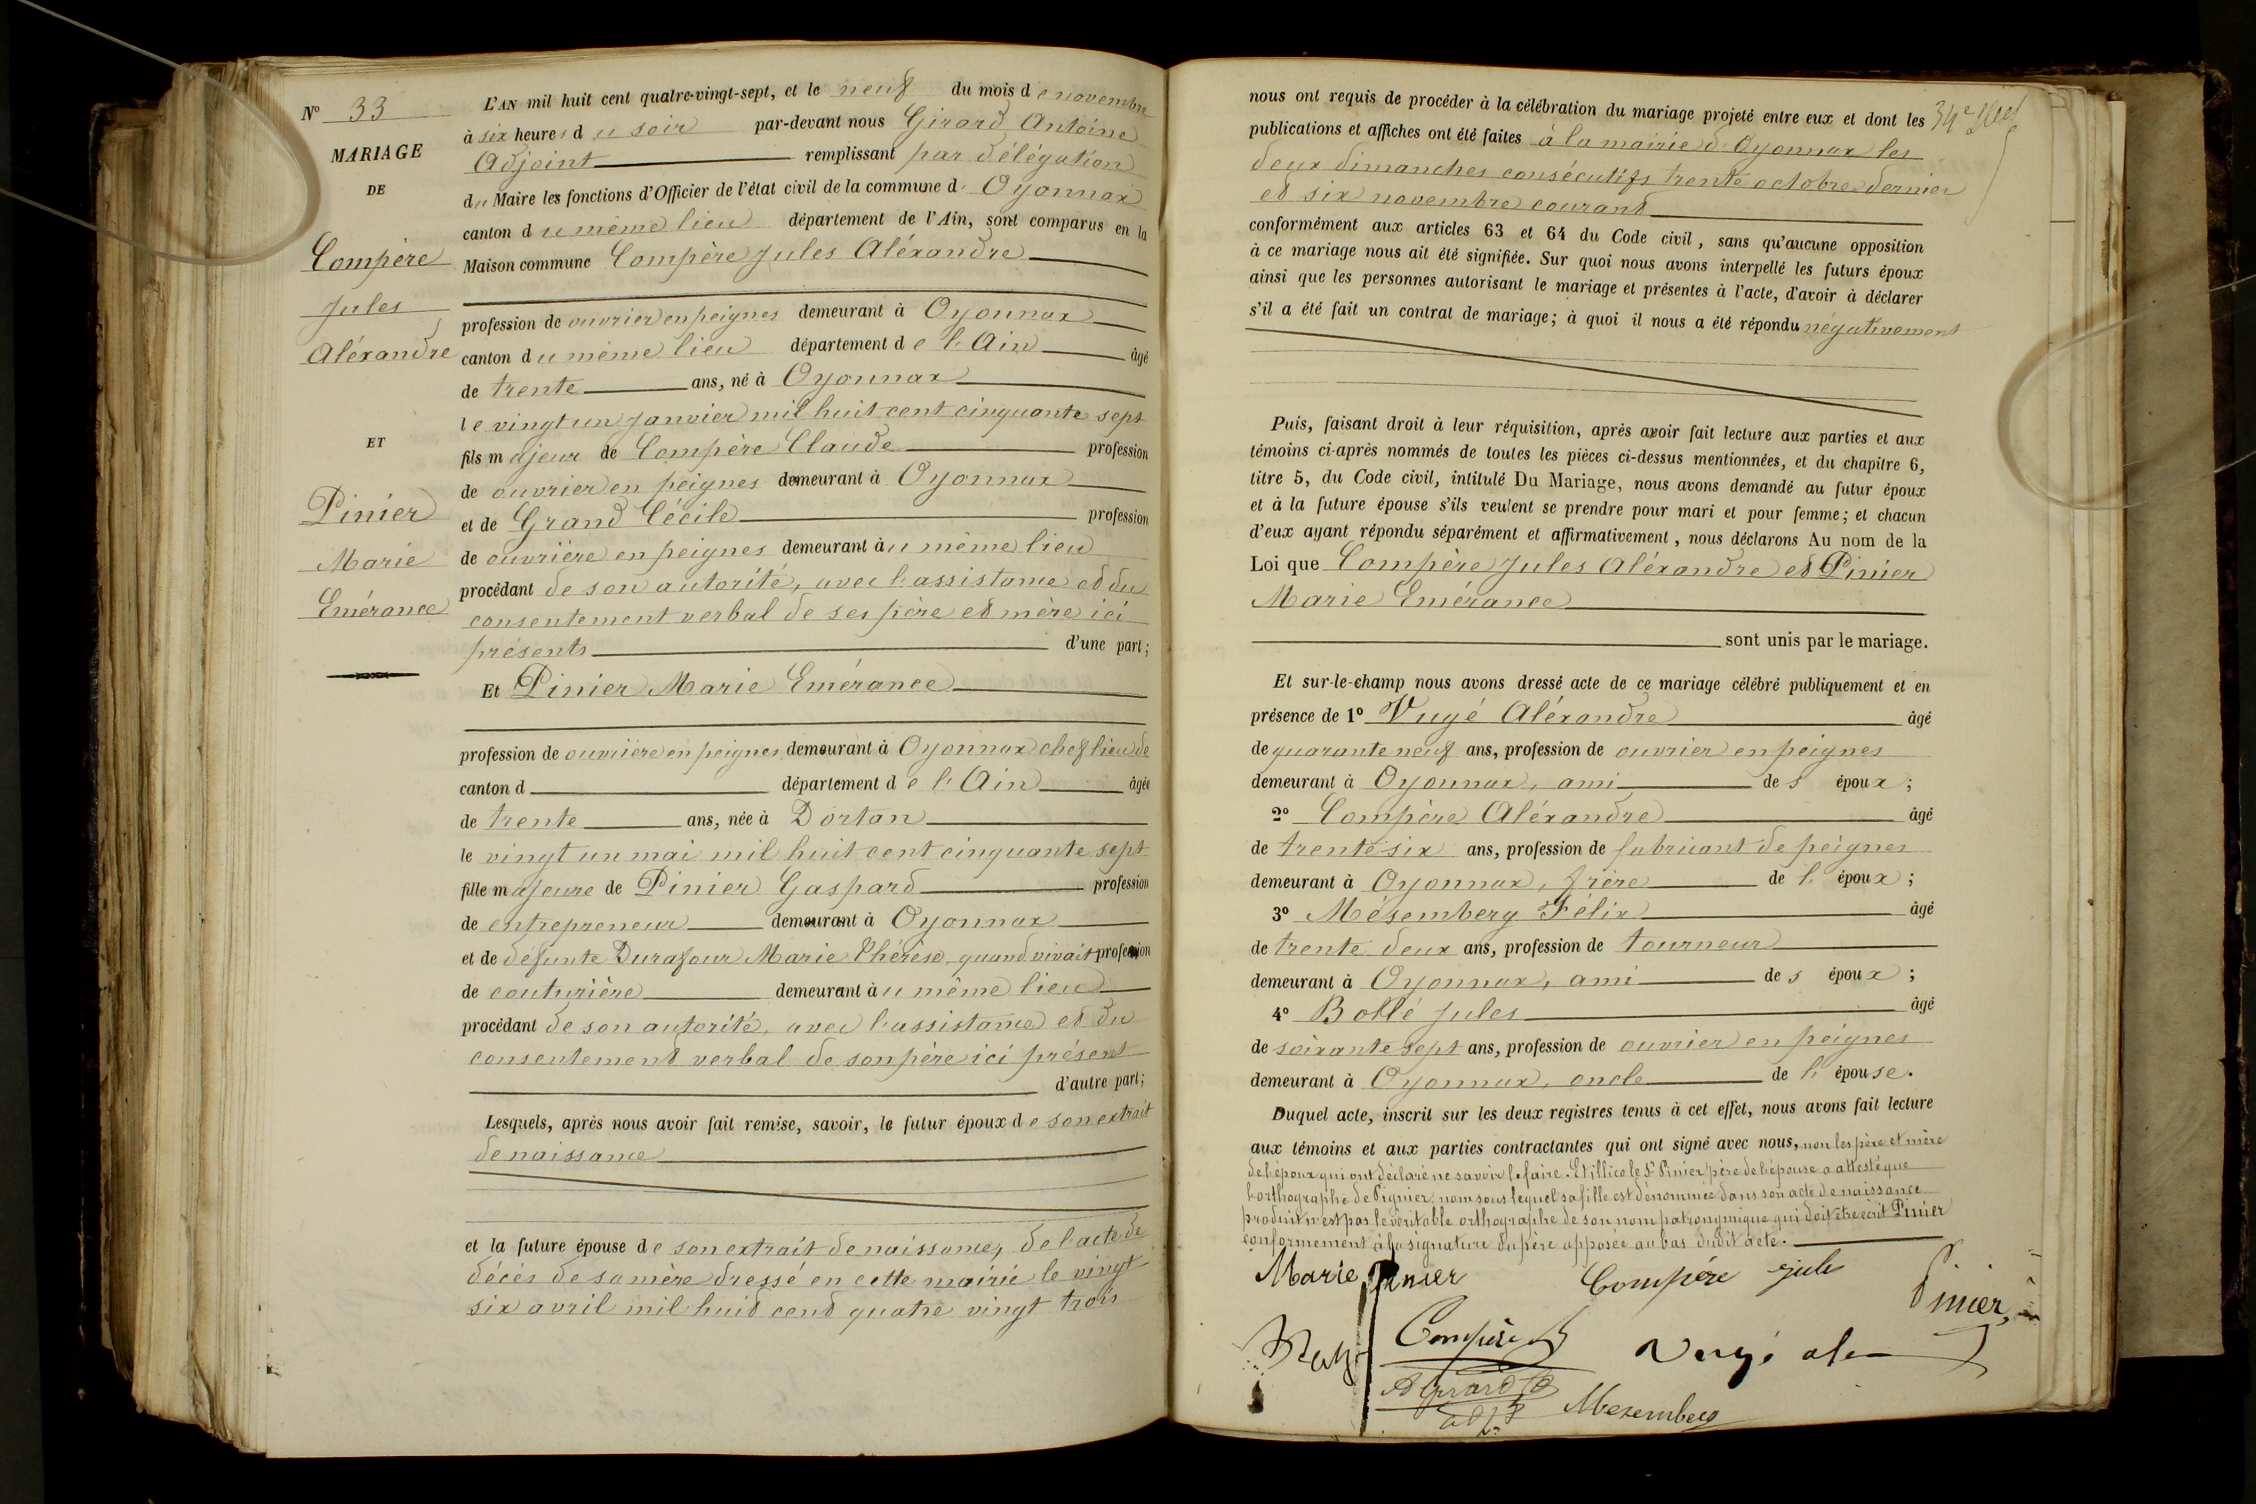 N° 33
MARIAGE
DE
Compère
Jules
Aléxandre
ET
Pinier
Marie
Emérance
L'AN mil huit cent quatre-vingt-sept, et le neuf du mois de novembre
à six heures du soir par-devant nous Girard Antoine
Adjoint remplissant par délégation
du Maire les fonctions d'Officier de l'état civil de la commune d' Oyonnax
canton du même lieu département de l'Ain, sont comparus en la
Maison commune Compère Jules Aléxandre
profession de ouvrier en peignes demeurant à Oyonnax
canton du même lieu département de l'Ain âgé
de trente ans, né à Oyonnax
le vingt un janvier mil huit cent cinquante sept
fils majeur de Compère Claude profession
de ouvrier en peignes demeurant à Oyonnax
et de Grand Cécile profession
de ouvrière en peignes demeurant àu même lieu
procédant de son autorité, avec l'assistance et du
consentement verbal de ses père et mère ici
présents d'une part;
Et Pinier Marie Emérance
profession de ouvrière en peignes demeurant à Oyonnax chef lieu de
canton d département de l'Ain âgée
de trente ans, née à Dortan
le vingt un mai mil huit cent cinquante sept
fille majeure de Pinier Gaspard profession
de entrepreneur demeurant à Oyonnax
et de défunte Durafour Marie Thérèse, quand vivait profession
de couturière demeurant àu même lieu
procédant de son autorité, avec l'assistance et du
consentement verbal de son père ici présent
d'autre part;
Lesquels, après nous avoir fait remise, savoir, le futur époux de son extrait
de naissance
et la future épouse de son extrait de naissance, de l'acte de
décès de sa mère dressé en cette mairie le vingt
six avril mil huit cent quatre vingt trois
nous ont requis de procéder à la célébration du mariage projeté entre eux et dont les
34e
publications et affiches ont été faites à la mairie d'Oyonnax les
deux dimanches consécutifs trente octobre dernier
et six novembre courant
conformément aux articles 63 et 64 du Code civil, sans qu'aucune opposition
à ce mariage nous ait été signifiée. Sur quoi nous avons interpellé les futurs époux
ainsi que les personnes autorisant le mariage et présentes à l'acte, d'avoir à déclarer
s'il a été fait un contrat de mariage; à quoi il nous a été répondu négativement
Puis, faisant droit à leur réquisition, après avoir fait lecture aux parties et aux
témoins ci-après nommés de toutes les pièces ci-dessus mentionnées, et du chapitre 6,
titre 5, du Code civil, intitulé Du Mariage, nous avons demandé au futur époux
et à la future épouse s'ils veulent se prendre pour mari et pour femme; et chacun
d'eux ayant répondu séparément et affirmativement, nous déclarons Au nom de la
Loi que Compère Jules Aléxandre et Pinier
Marie Emérance
sont unis par le mariage.
Et sur-le-champ nous avons dressé acte de ce mariage célébré publiquement et en
présence de 1° Vugé Aléxandre âgé
de quarante neuf ans, profession de ouvrier en peignes
demeurant à Oyonnax, ami des époux;
2° Compère Aléxandre âgé
de trente six ans, profession de fabricant de peignes
demeurant à Oyonnax, frère de l'époux;
3° Mésemberg Félix âgé
de trente deux ans, profession de tourneur
demeurant à Oyonnax, ami des époux;
4° Bollé Jules âgé
de soixante sept ans, profession de ouvrier en peignes
demeurant à Oyonnax, oncle de l'épouse.
Duquel acte, inscrit sur les deux registres tenus à cet effet, nous avons fait lecture
aux témoins et aux parties contractantes qui ont signé avec nous, non les père et mère
de l'époux qui ont déclaré ne savoir le faire. Et illico le Sr Pinier père de l'épouse a attesté que
l'orthographe de Pignier, nom sous lequel sa fille est dénommée dans son acte de naissance
produit n'est pas la véritable orthographe de son nom patronymique qui doit être écrit Pinier
conformement à la signature du père apposée au bas dudit acte.
Marie Pinier Compère jule Pinier
Compère Vugé alex
A Girard
adjt Mezemberg